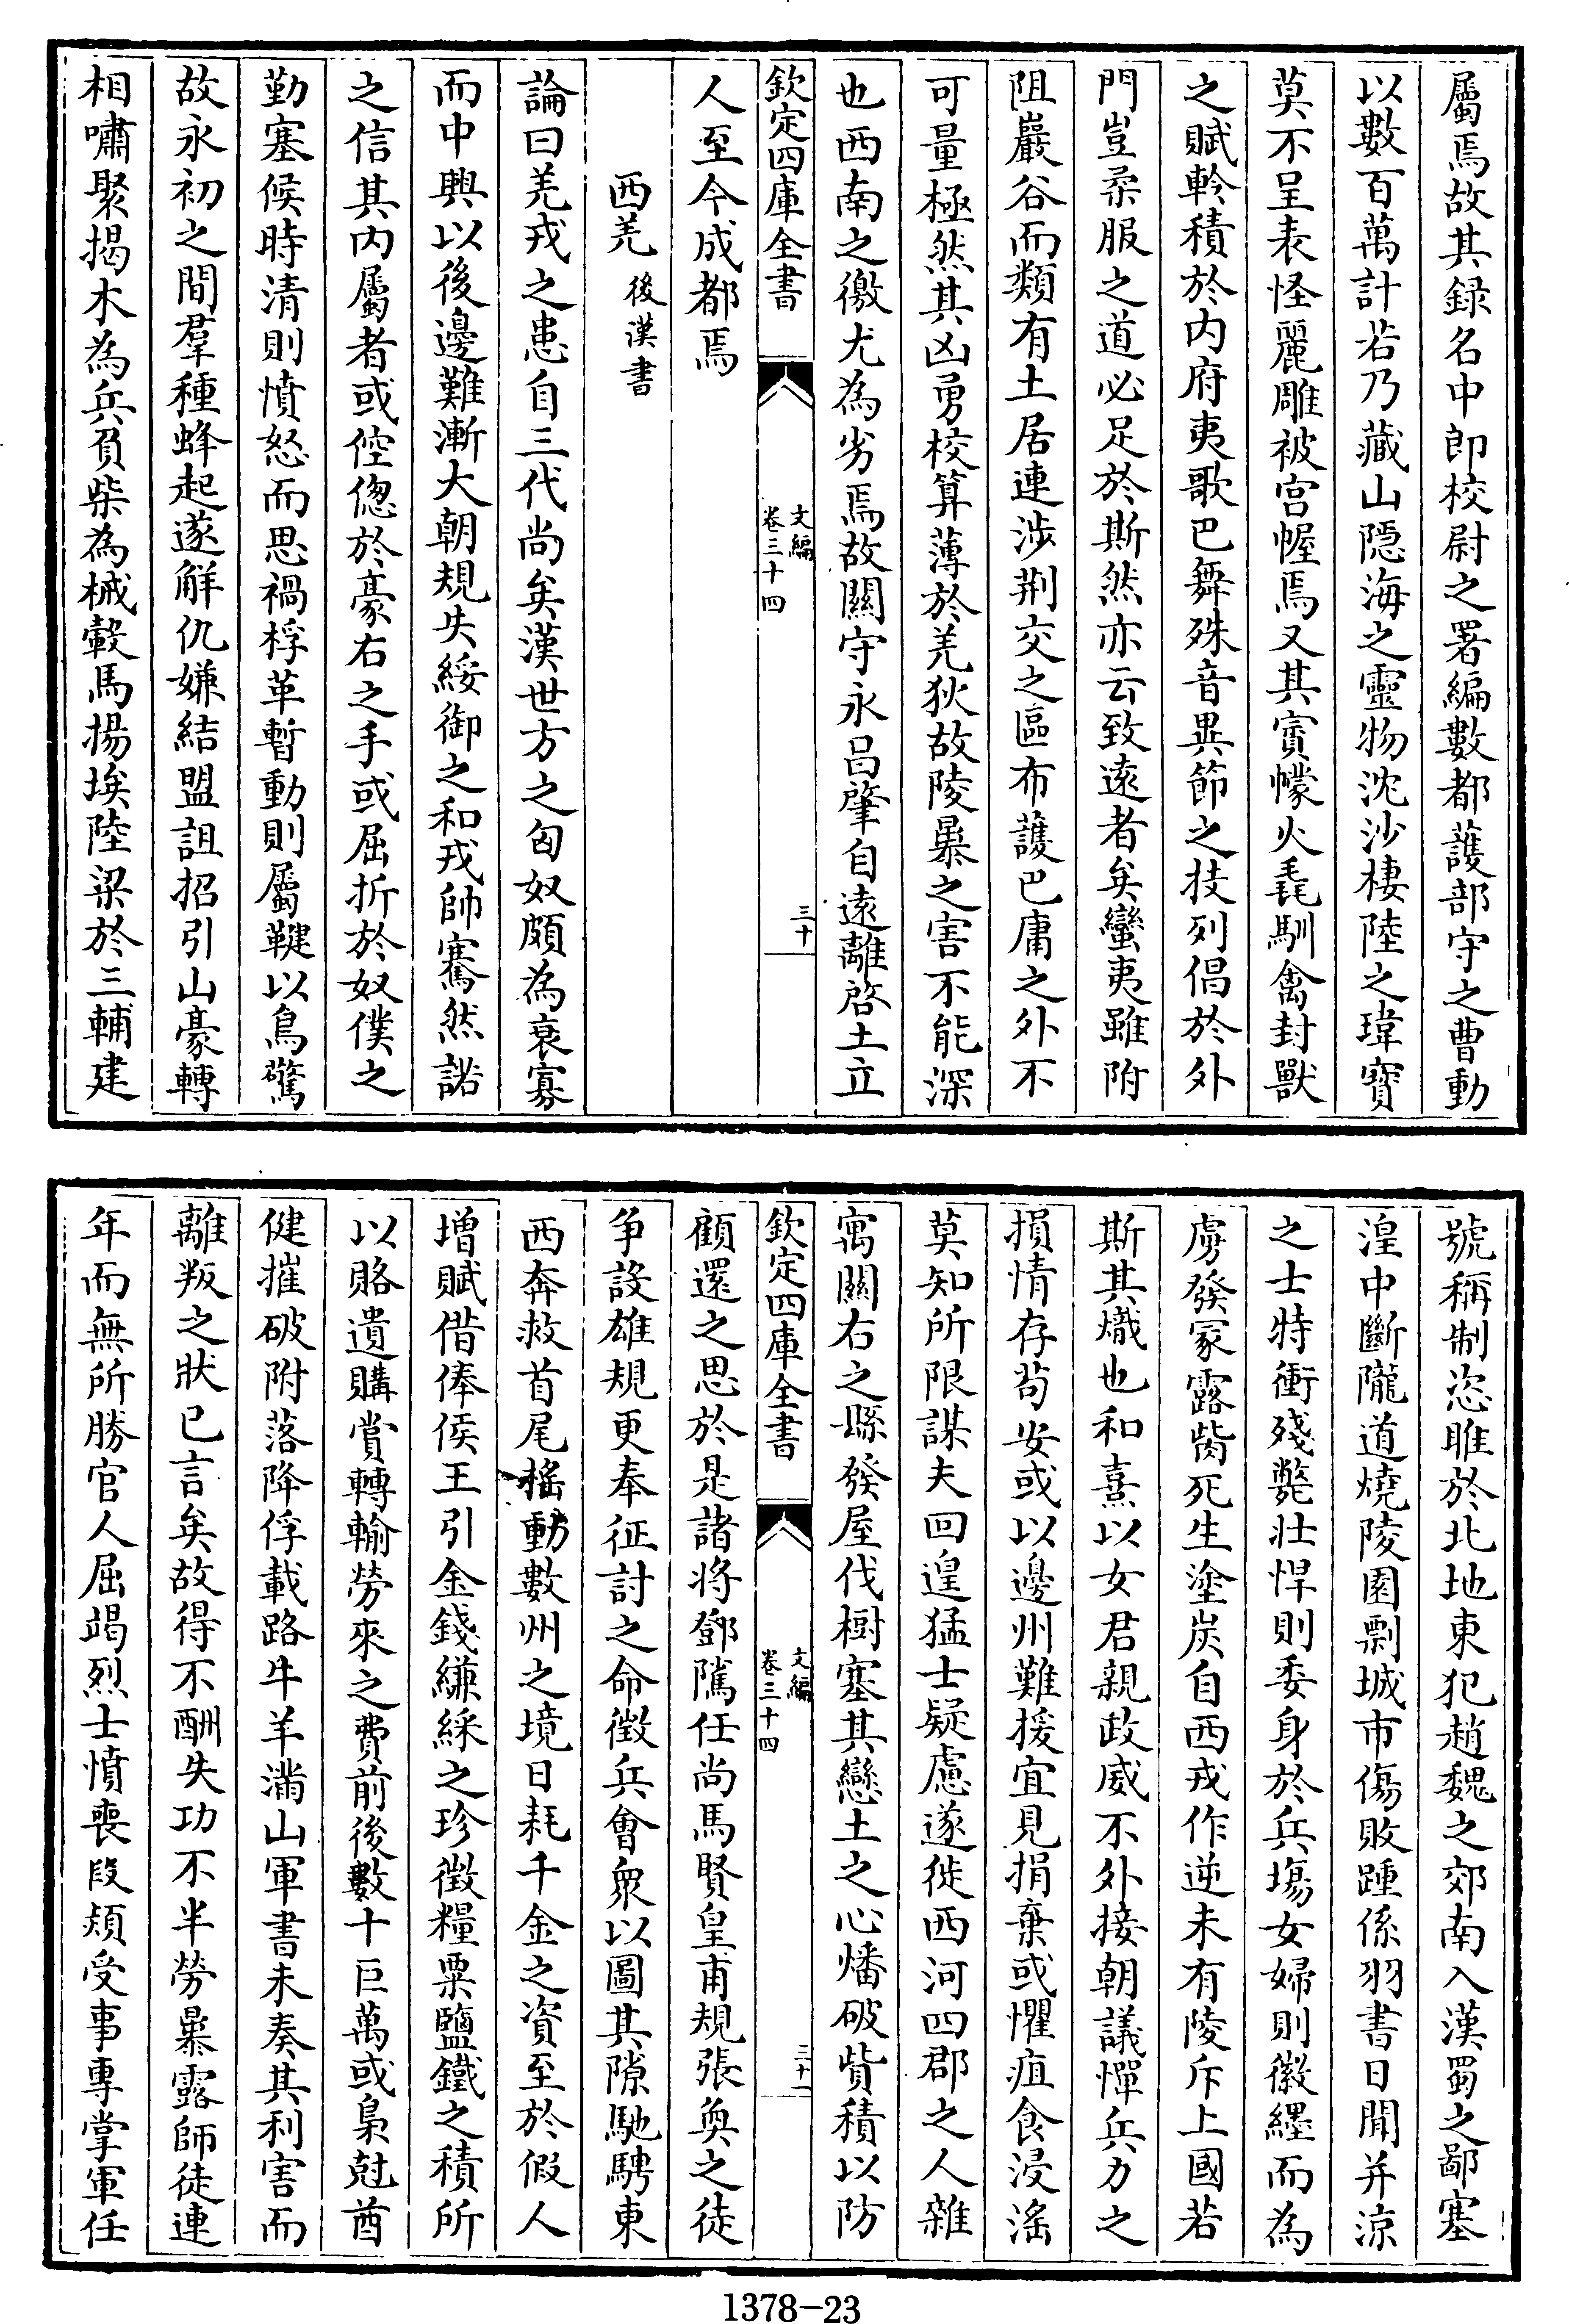 屬焉故其録名中郎校尉之署編數都護部守之曹動
以數百萬計若乃藏山隠海之靈物沈沙棲陸之瑋寳
莫不呈表怪麗雕被宫幄焉又其賨幪火毳馴禽封獸
之賦軨積於内府夷歌巴舞殊音異節之技列倡於外
門豈柔服之道必足於斯然亦云致逺者矣蠻夷雖附
阻巖谷而類有土居連涉荆交之區布護巴庸之外不
可量極然其凶勇校算薄於羌狄故陵暴之害不能深
也西南之徼尤為劣焉故關守永昌肇自逺離啓土立
欽定四庫全書
文編
卷三十四
三十
人至今成都焉
西羌 後漢書
論曰羌戎之患自三代尚矣漢世方之匈奴頗為衰寡
而中興以後邊難漸大朝規失綏御之和戎帥騫然諾
之信其内屬者或倥偬於豪右之手或屈折於奴僕之
勤塞候時清則憤怒而思禍桴革暫動則屬鞬以鳥驚
故永初之間羣種蜂起遂解仇嫌結盟詛招引山豪轉
相嘯聚揭木為兵負柴為械轂馬揚埃陸梁於三輔建
號稱制恣睢於北地東犯趙魏之郊南入漢蜀之鄙塞
湟中斷隴道燒陵園剽城市傷敗踵係羽書日聞并涼
之士特衝殘斃壯悍則委身於兵塲女婦則徽纆而為
虜發冢露胔死生塗炭自西戎作逆未有陵斥上國若
斯其熾也和熹以女君親政威不外接朝議憚兵力之
損情存苟安或以邊州難援宜見捐棄或懼疽食浸滛
莫知所限謀夫回遑猛士疑慮遂徙西河四郡之人雜
寓關右之縣發屋伐樹塞其戀土之心燔破貲積以防
欽定四庫全書
文編
卷三十四
三十一
顧還之思於是諸將鄧隲任尚馬賢皇甫規張奐之徒
争設雄規更奉征討之命徴兵會衆以圖其隙馳騁東
西奔救首尾揺動數州之境日耗千金之資至於假人
増賦借俸侯王引金錢縑綵之珍徴糧粟鹽鐵之積所
以賂遺購賞轉輸勞來之費前後數十巨萬或梟尅酋
健摧破附落降俘載路牛羊滿山軍書未奏其利害而
離叛之狀已言矣故得不酬失功不半勞暴露師徒連
年而無所勝官人屈竭烈士憤喪段熲受事専掌軍任
1378-23